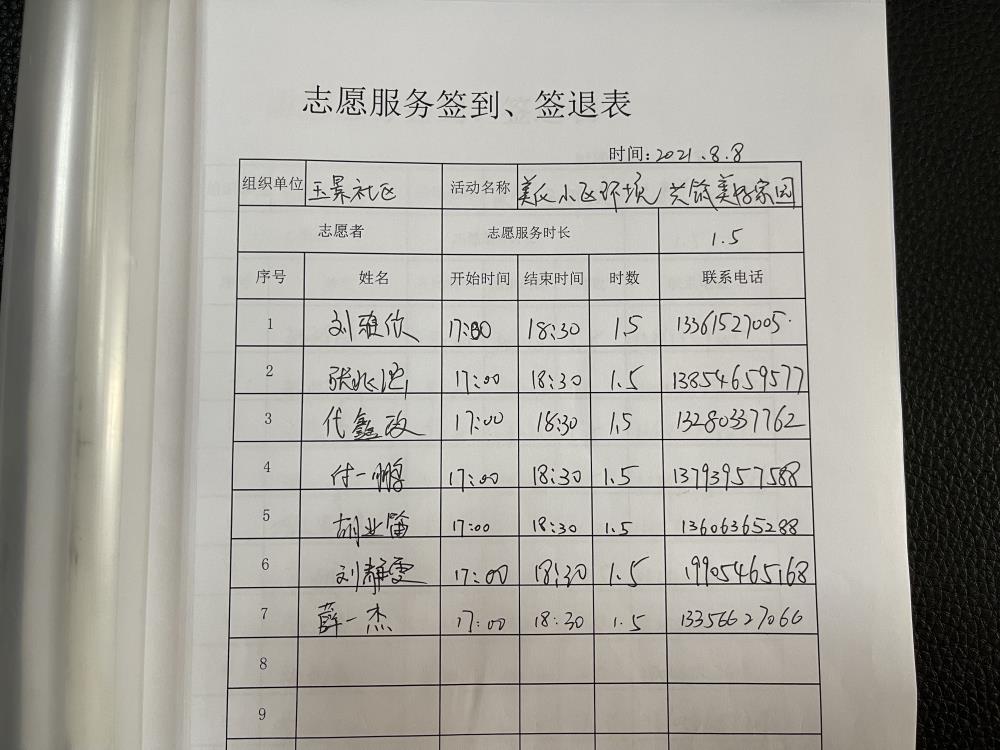 志愿服务签到、签退表
时间:2021.8.8
组织单位 玉景社区 活动名称 美化小区环境 共筑美好家园
志愿者 志愿服务时长 1.5
序号 姓名 开始时间 结束时间 时数 联系电话
1 刘雅欣 17:00 18:30 1.5 13361527005
2 17:00 18:30 1.5 13854659577
3 代鑫政 17:00 18:30 1.5 13280337762
4 付一鹏 17:00 18:30 1.5 13793957588
5 胡业笛 17:00 18:30 1.5 13606365288
6 刘静雯 17:00 18:30 1.5 19905465168
7 薛一杰 17:00 18:30 1.5 13356627066
8
9